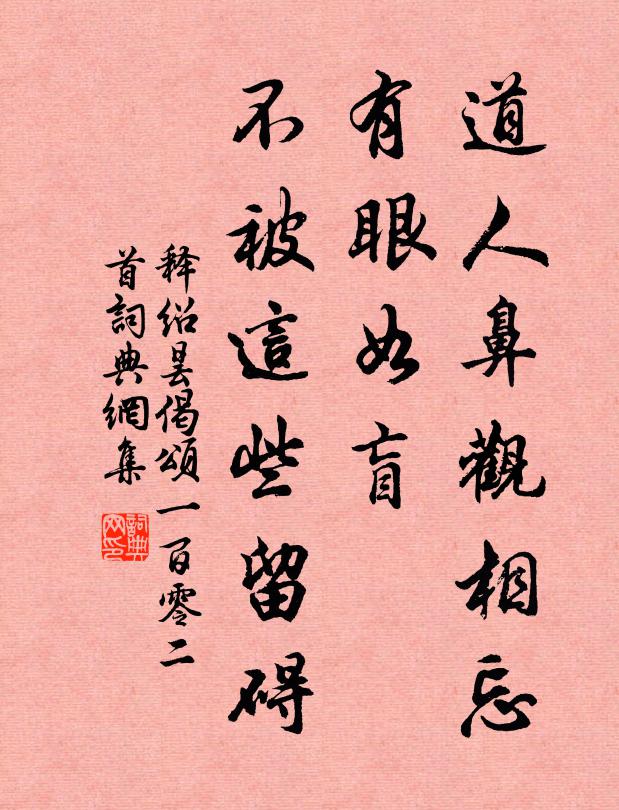 道人鼻觀相忘
有眼如盲
不被這些留碍
释绍昙偈頌一百零二
首詞典網集
詞典网印